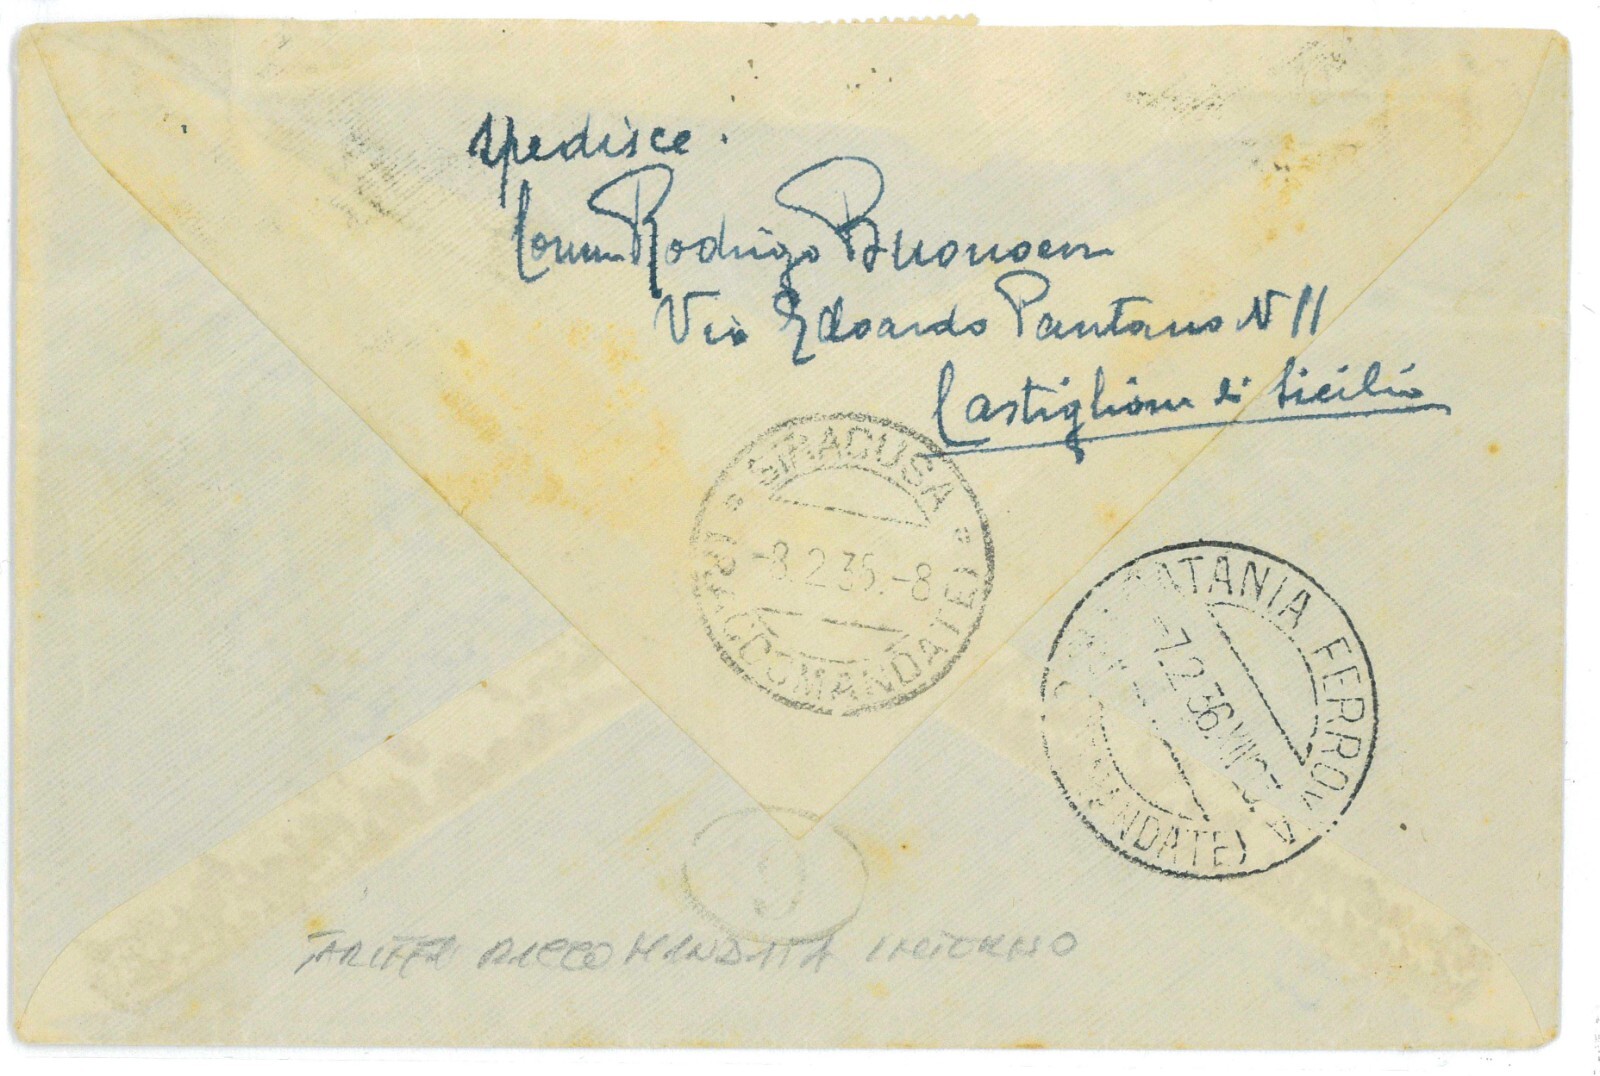 Spedisce.
Comm Rodrigo
Via Edoardo Pantano N 11
Castiglione di Sicilia
SIRACUSA
-8.2.36.-8
(RACCOMANDATE)
CATANIA FERROVIA
-7.2.36.XIV
MANDATE)
9
TARIFFA RACCOMANDATA INTERNO